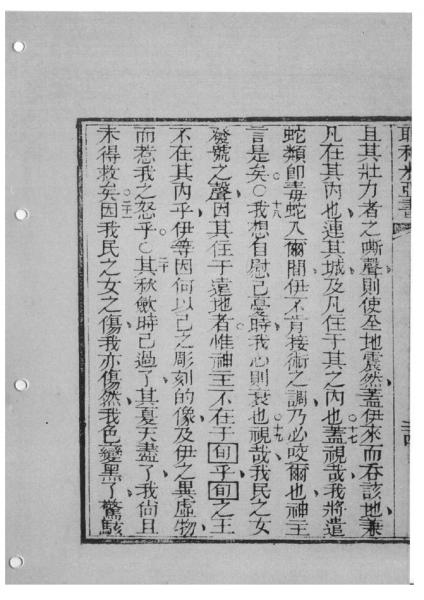 耶利米亞書
且其壯力者之嘶聲則使全地震然蓋伊來而吞該地兼
凡在其內也連其城及凡住于其之內也十七蓋視哉我將遣
蛇類即毒蛇入爾間伊不肯接術之調乃必咬爾也神主
言是矣○十八我想自慰己憂時我心則衰也十九視哉我民之女
發號之聲因其住于遠地者惟神主不在于旬乎旬之王
不在其內乎伊等因何以己之彫刻的像及伊之異虛物
而惹我之怒乎○二十其秋斂時已過了其夏天盡了我尙且
未得救矣二十一因我民之女之傷我亦傷然我色變黑了驚駭